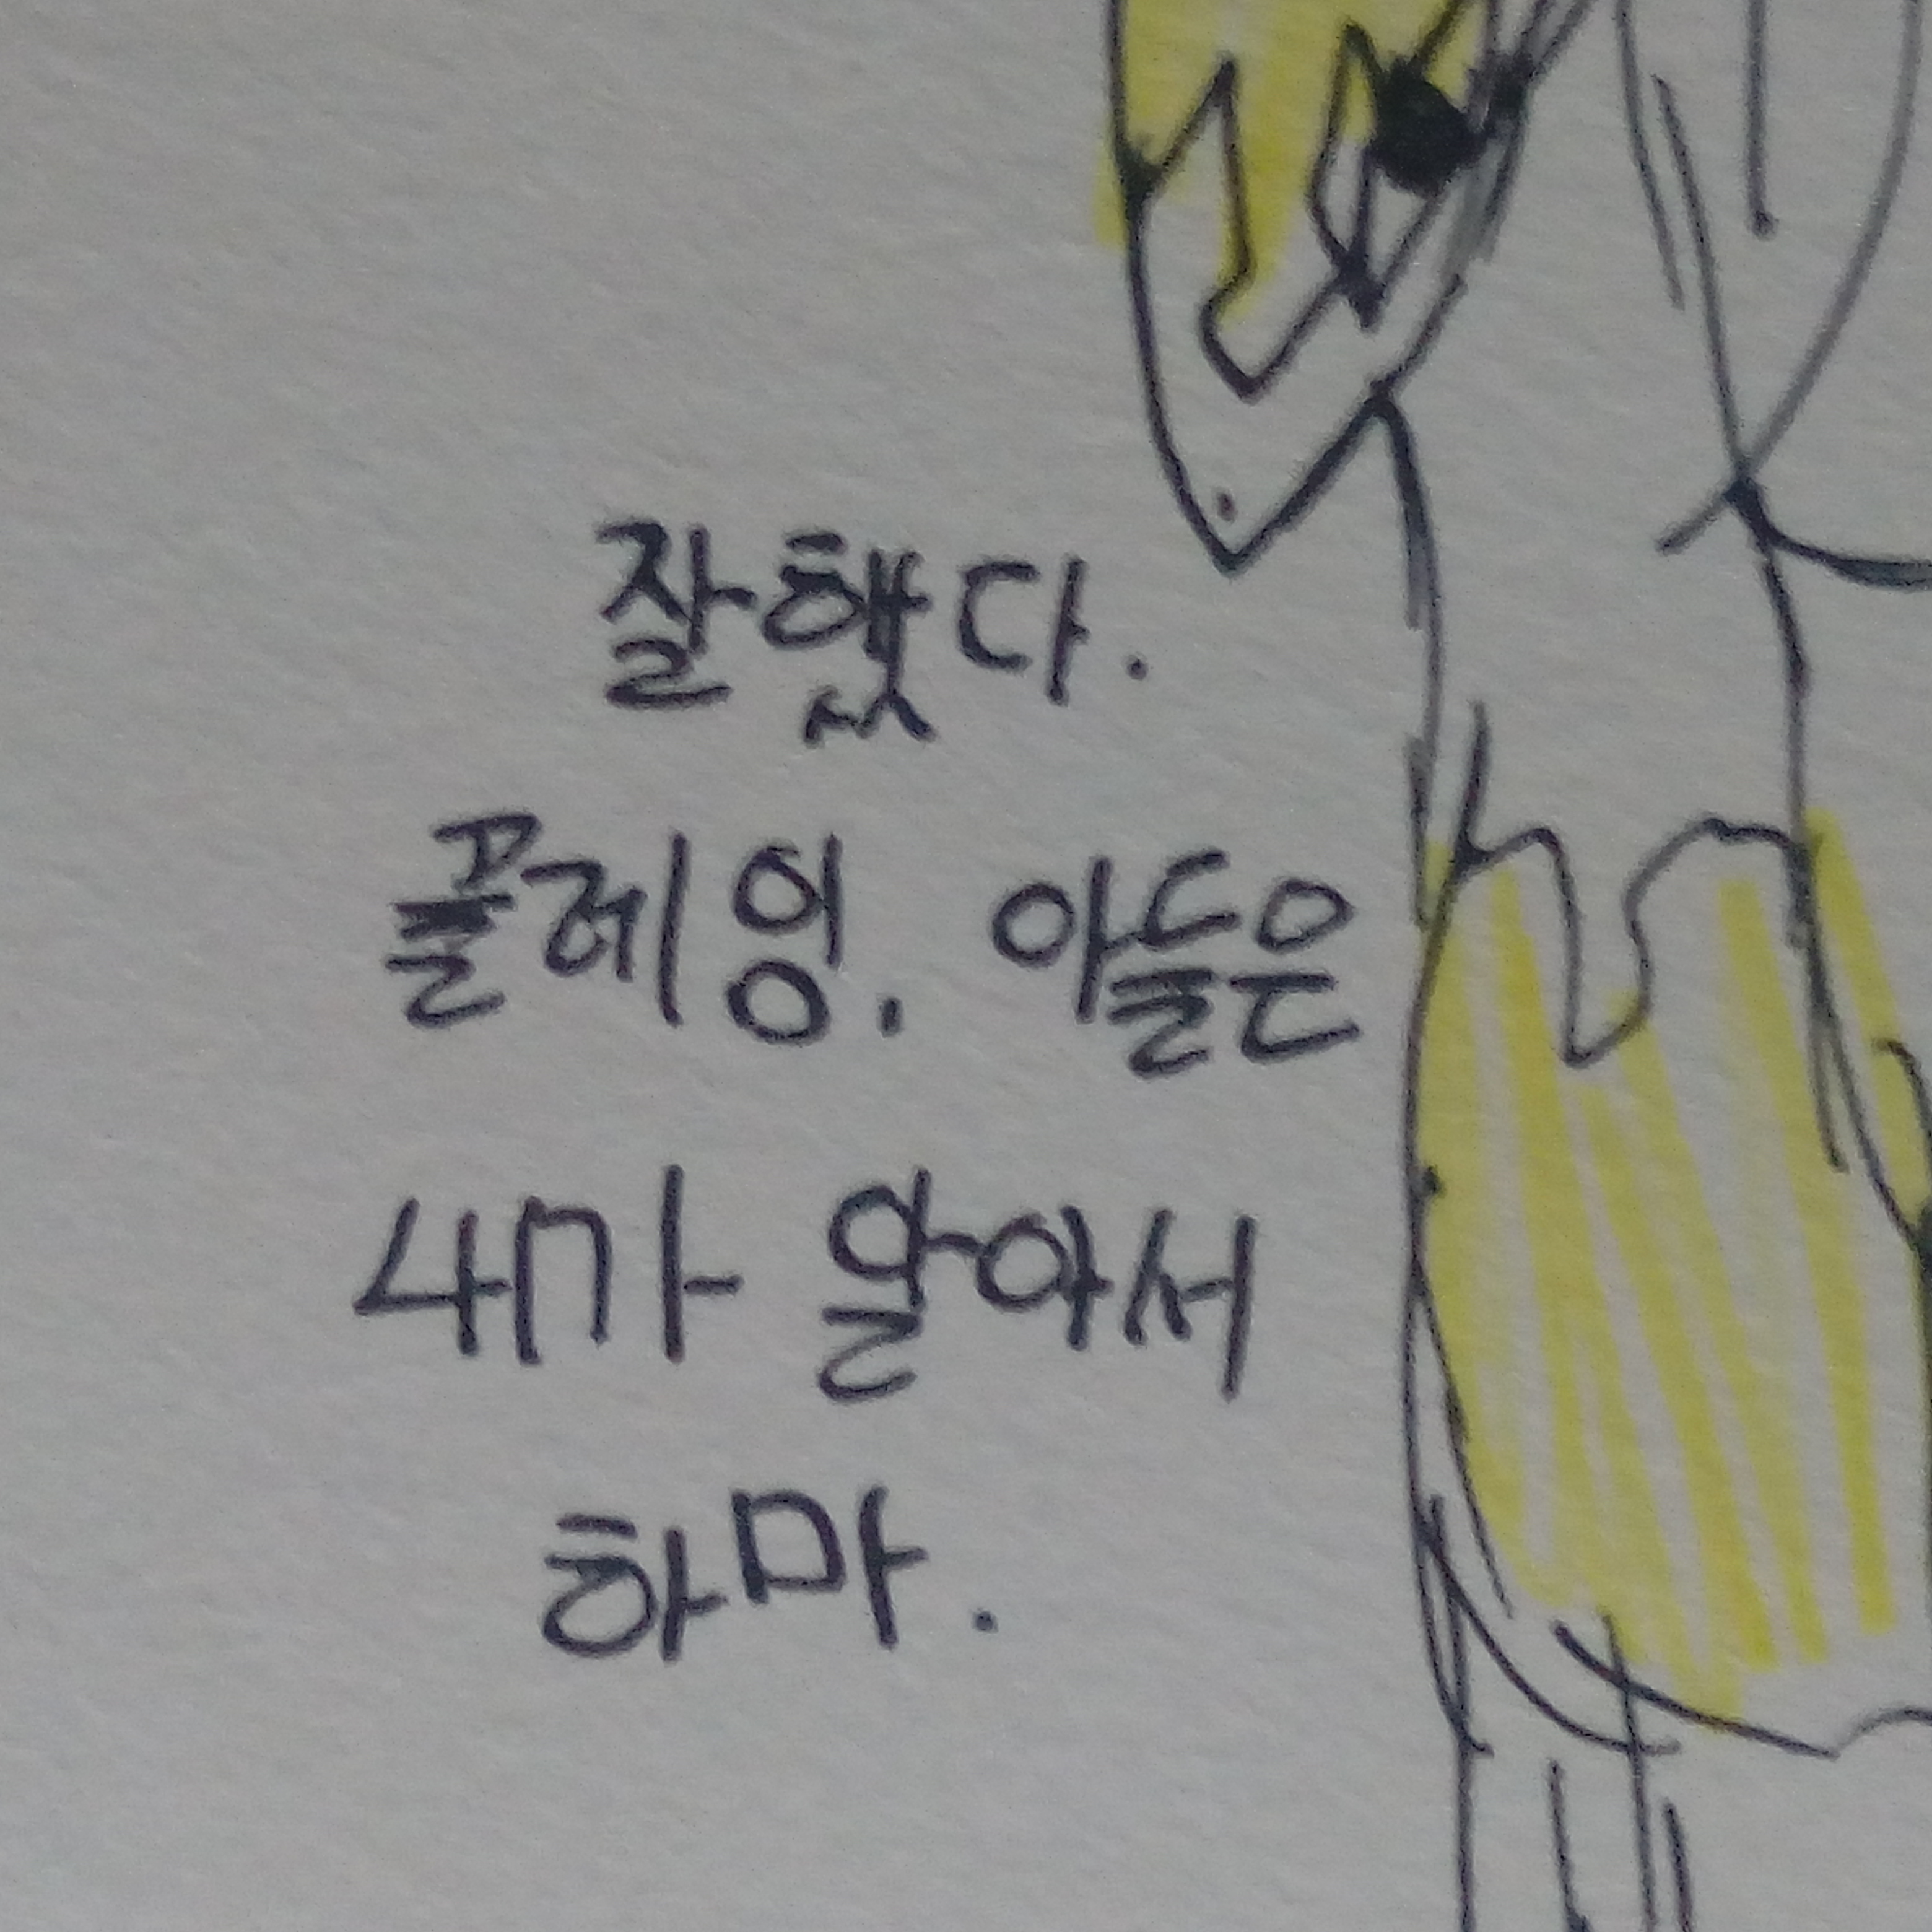 잘했다.
클레잉. 아들은
내가 알아서
하마.